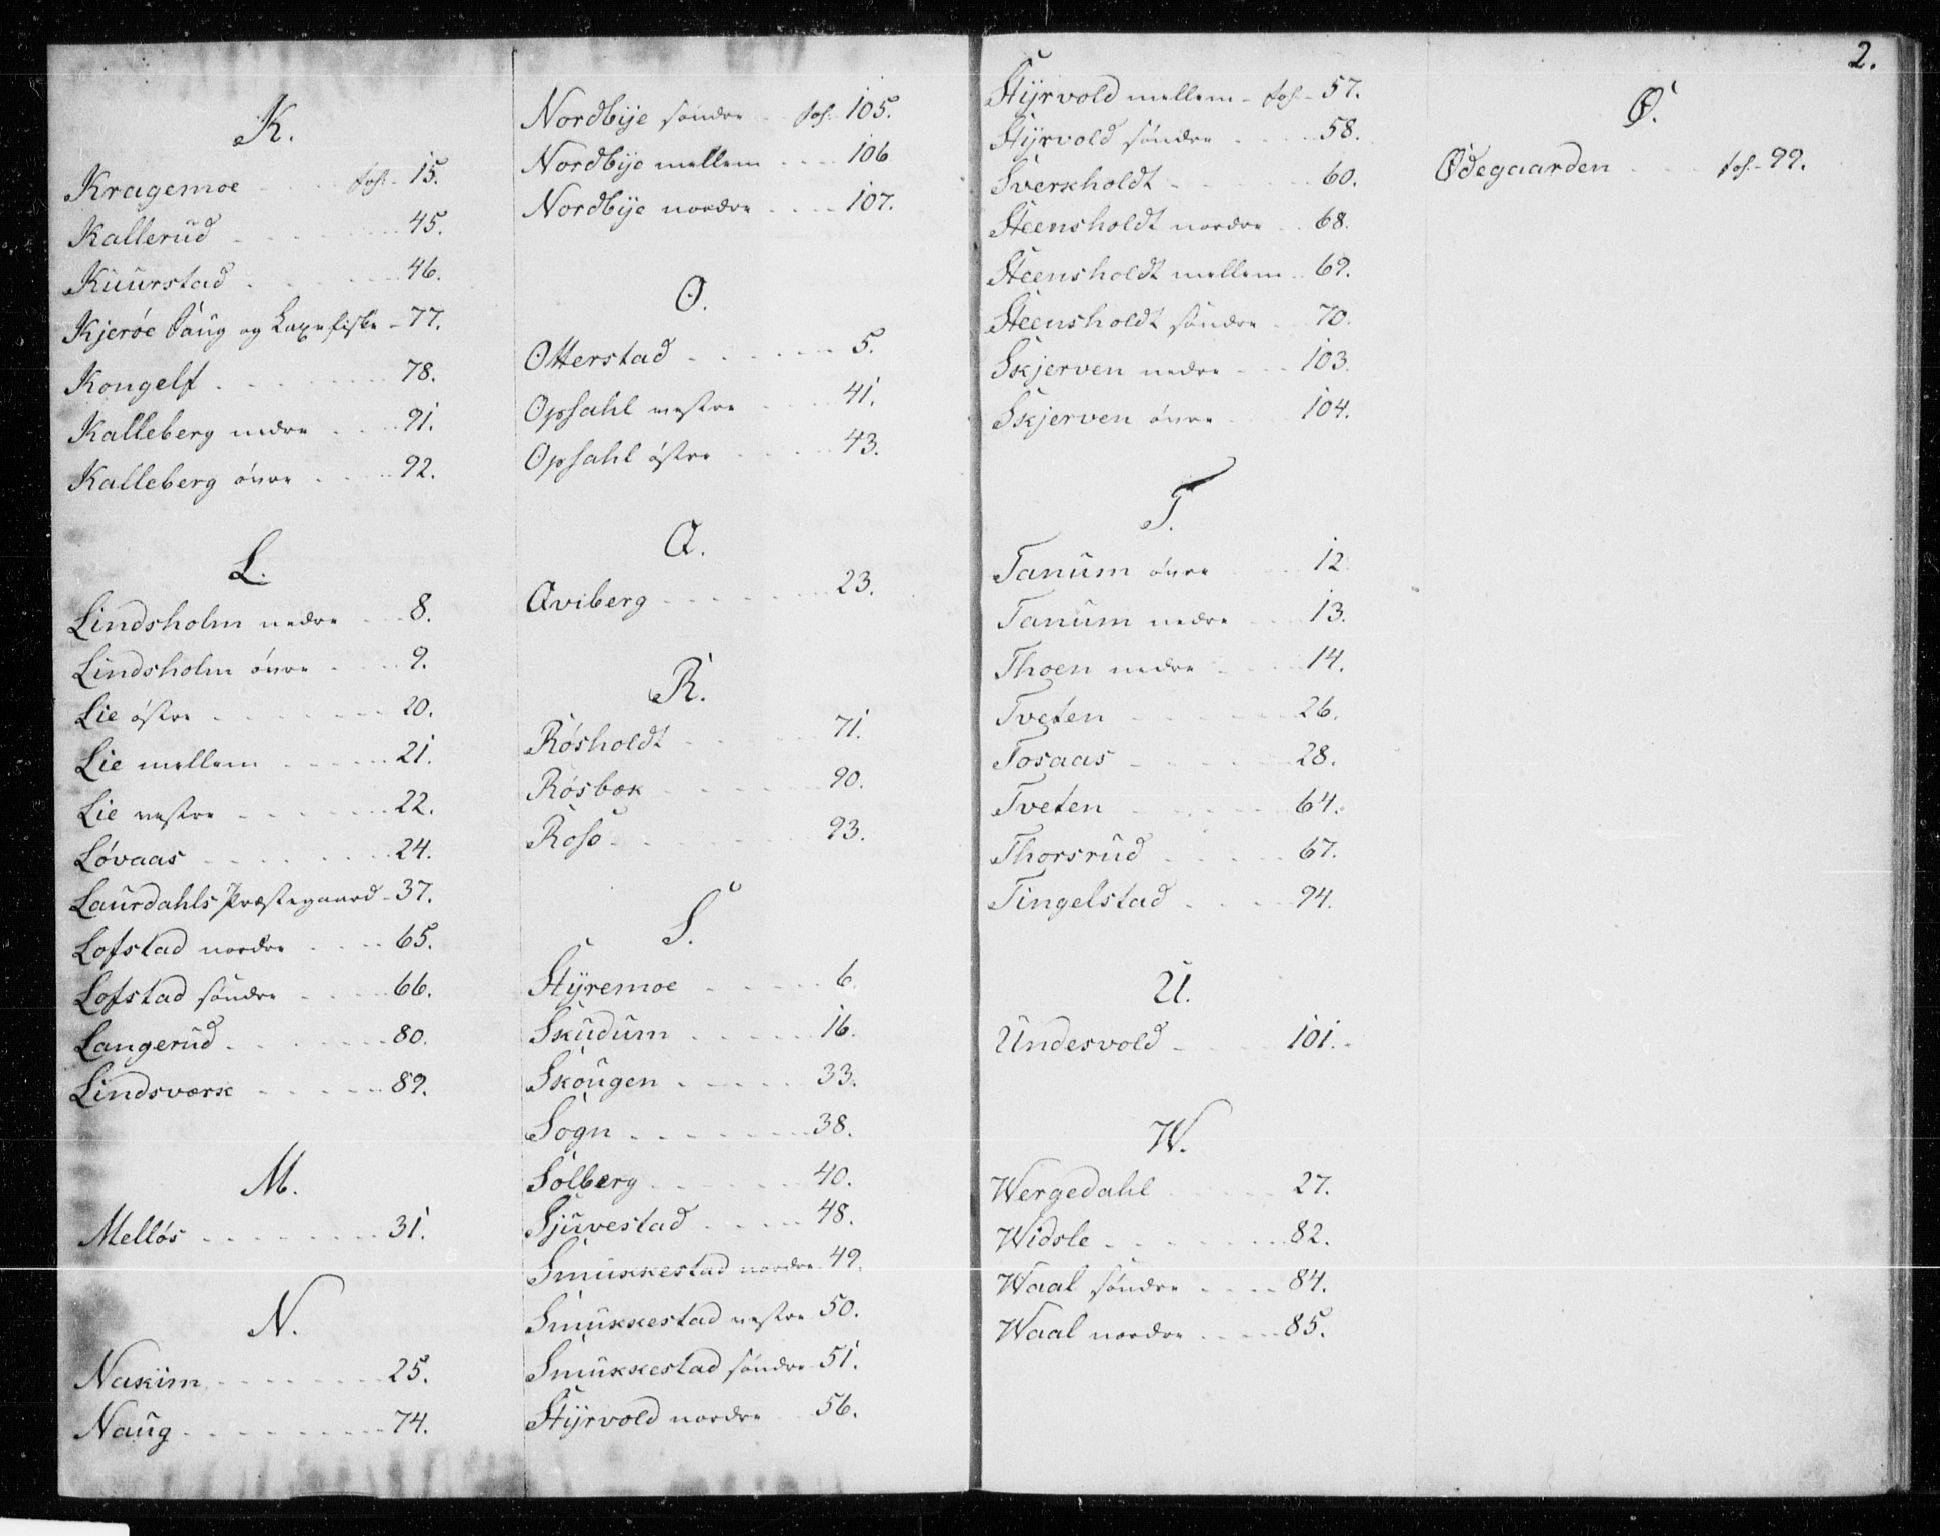 K.
Kragemoe - - - fol. - 15.
Kallerud - - - 45.
Kuurstad - - - 46.
Kjerøe Saug og Laxefiske - 77.
Kongelf - - - 78.
Kalleberg nedre - - - 91.
Kalleberg övre - - - 92.
L.
Lindsholm nedre - - - 8.
Lindsholm övre - - - 9.
Lie östre - - - 20.
Lie mellem - - - 21.
Lie vestre - - - 22.
Lövaas - - - 24.
Laurdahls Præstegaard - 37.
Lofstad nordre - - - 65.
Lofstad söndre - - - 66.
Langerud - - - 80.
Lindsværk - - - 89.
M.
Mellös - - - 31.
N.
Nakim - - - 25.
Naug - - - 74.
Nordbije söndre - - fol. 105.
Nordbije mellem - - - 106
Nordbije nordre - - - 107.
O.
Otterstad - - - 5.
Opsahl vestre - - - 41.
Opsahl östre - - - 43.
Q.
Qviberg - - - 23.
R.
Rösholdt - - - 71.
Rösbæk - - - 90.
Roso - - - 93.
S.
Stÿremoe - - - 6.
Skudum - - - 16.
Skougen - - - 33.
Sogn - - - 38.
Solberg - - - 40.
Sjuvestad - - - 48.
Smukkestad nordre - 49.
Smukkestad vestre 50.
Smukkestad söndre - 51.
Stÿrvold nordre - - 56.
2.
Stÿrvold mellem - fol. - 57.
Stÿrvold söndre - - - 58.
Sverkholdt - - - 60.
Steensholdt nordre - - 68.
Steensholdt mellem - - 69.
Steensholdt söndre - - 70.
Skjerven nedre - - - 103.
Skjerven övre - - - 104.
T.
Tanum övre - - - 12.
Tanum nedre - - - 13.
Thoen nedre - - - 14.
Tveten - - - 26.
Tosaas - - - 28.
Tveten - - - 64.
Thorsrud - - - 67.
Tingelstad - - - 94.
U.
Undesvold - - - 101.
W.
Wergedahl - - - 27.
Widsle - - - 82.
Waal söndre - - - 84.
Waal nordre - - - 85.
Ø.
Ødegaarden - - - fol. - 99.